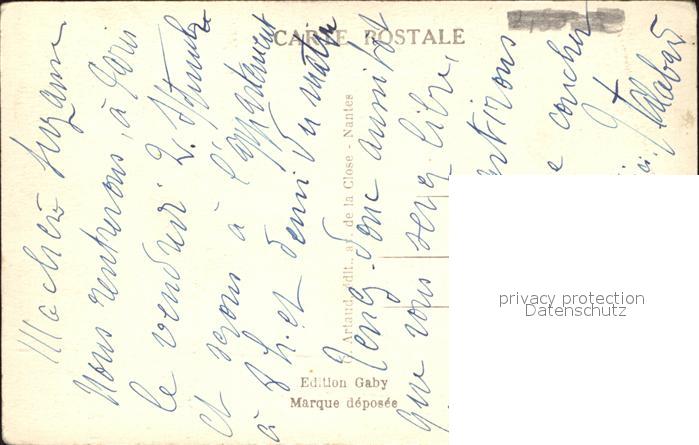 CARTE POSTALE
Ma chère Suzanne
Nous rentrerons, à Paris
le vendredi 2 Septembre
et serons à l'appartement
à 8 h. et demi du matin
Venez donc aussitôt
que vous serez libre,
coucher
Artaud, Edit., av. de la Close - Nantes
Edition Gaby
Marque déposée
privacy protection
Datenschutz